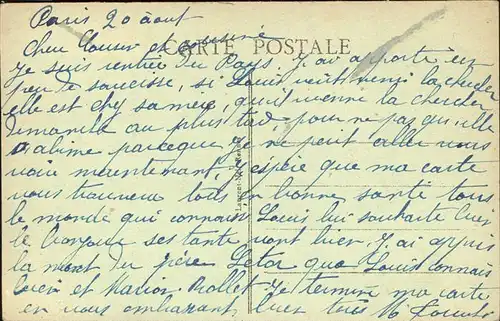 Paris 20 août
Cher Cousin et cousine
CARTE POSTALE
Je suis rentrée du Pays. J'ai apporté un
peu de saucisse, si Louis veut venir la chercher
elle est chez sa mère, qu'il vienne la chercher
dimanche au plus tard, pour ne pas qu'elle
s'abime parceque je ne peut aller vous
voir maintenant, j'espère que ma carte
vous trouvera tous en bonne santé tous
le monde qui connais Louis lui souhaite bien
le bonjour ses tante vont bien. J'ai appris
la mort du père que Louis connais
et Marion Je termine ma carte
en vous embrassant bien tous